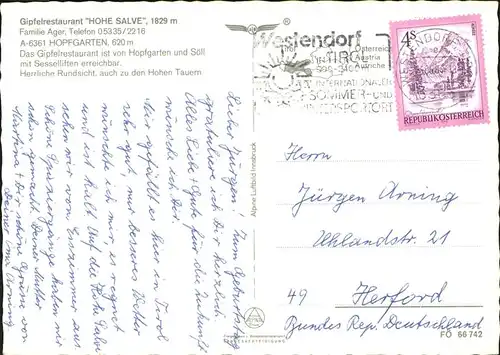 Gipfelrestaurant "HOHE SALVE", 1829 m
Familie Ager, Telefon 05335/2216
A-6361 HOPFGARTEN, 620 m
Das Gipfelrestaurant ist von Hopfgarten und Söll
mit Sesselliften erreichbar.
Herrliche Rundsicht, auch zu den Hohen Tauern
Lieber Jürgen! Zum Geburtstag
gratuliere ich Dir herzlich
Alles Liebe + Gute für die Zukunft
wünsche ich Dir.
Mir gefällt es hier in Tirol
sehr gut, nur besseres Wetter
wünschte ich mir, es regnet
und ist kalt. Auf die Hohe Salve
sehen wir von Esszimmer aus.
Schöne Spaziergänge haben wir
schon gemacht. Deiner Mutter
Martina + Dir schöne Grüsse von
Deiner Oma Arning
Alpine Luftbild Innsbruck
Westendorf
in TIROL
800-
Österreich
Austria
Autriche
INTERNATIONALER
SOMMER- UND
WINTERSPORTORT
4S
REPUBLIK ÖSTERREICH
Herrn
Jürgen Arning
Uhlandstr. 21
49 Herford
Bundes Rep. Deutschland
FÖ 66 742